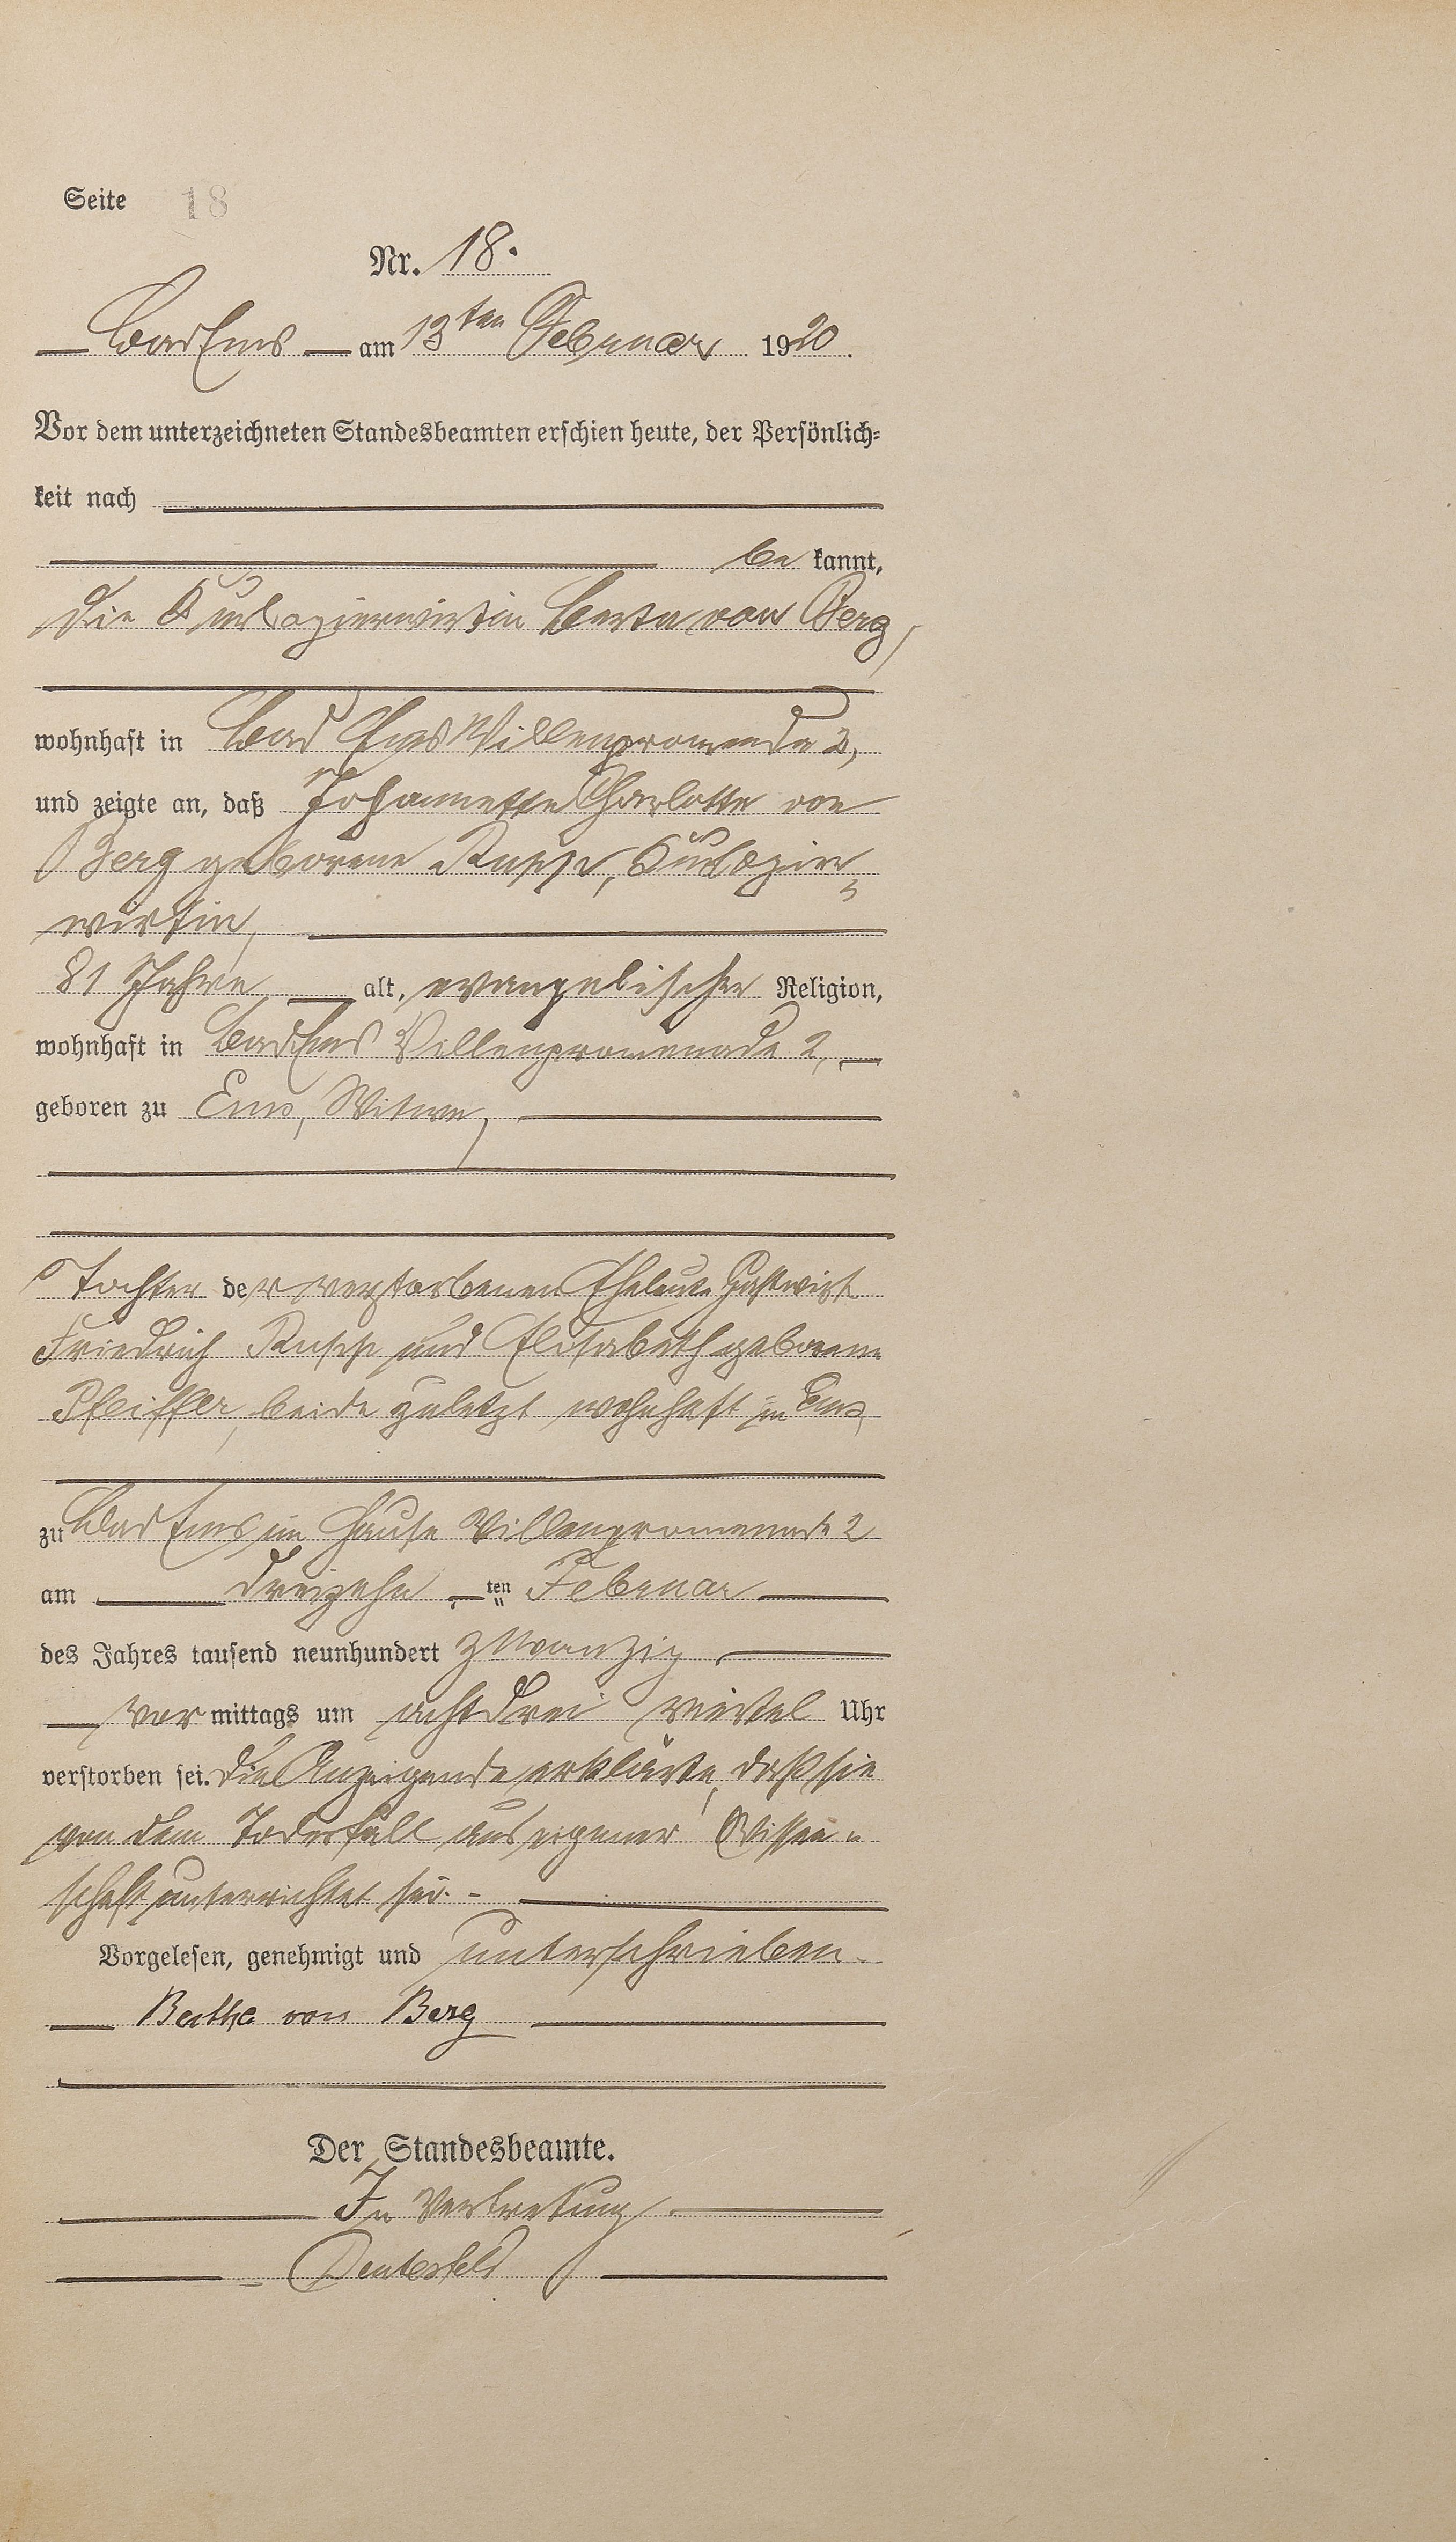 Seite 18
Nr. 18.
Bad Ems am 13ten Februar 1920.
Vor dem unterzeichneten Standesbeamten erschien heute, der Persönlich-
keit nach
be kannt,
die Kurlogierwirtin Berta von Berg,
wohnhaft in Bad Ems Villenpromenade 2,
und zeigte an, daß Johannette Charlotte von
Berg geborene Rupp, Kurlogier-
wirtin,
81 Jahre alt, evangelischer Religion,
wohnhaft in Bad Ems Villenpromenade 2,
geboren zu Ems, Witwe,
Tochter der verstorbenen Eheleute Gastwirt
Friedrich Rupp und Elisabeth geborene
Pfeiffer, beide zuletzt wohnhaft in Ems,
zu Bad Ems im Hause Villenpromenade 2
am dreizehn ten Februar
des Jahres tausend neunhundert zwanzig
vor mittags um acht drei viertel Uhr
verstorben sei. Die Anzeigende erklärte, daß sie
von dem Todesfall aus eigener Wissen-
schaft unterrichtet sei. -
Vorgelesen, genehmigt und unterschrieben.
Berthe von Berg
Der Standesbeamte.
In Vertretung.